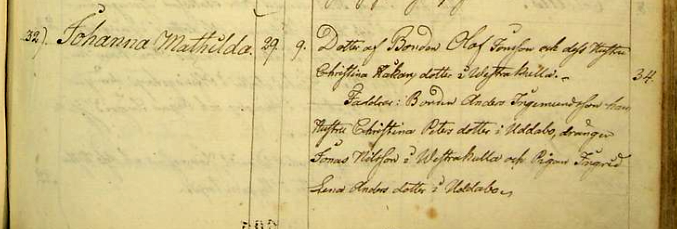 32). Johanna Mathilda. 29. 9. Dotter af Bonden Olaf Jonsson och dess Hustru
Christina Håkans dotter i Westrakulla. 34.
Faddrar: Bonden Anders Ingemundsson hans
Hustru Christina Peters dotter i Uddabo, drängen
Jonas Nilsson i Westrakulla och Pigan Ingrid
Lena Anders dotter i Uddabo